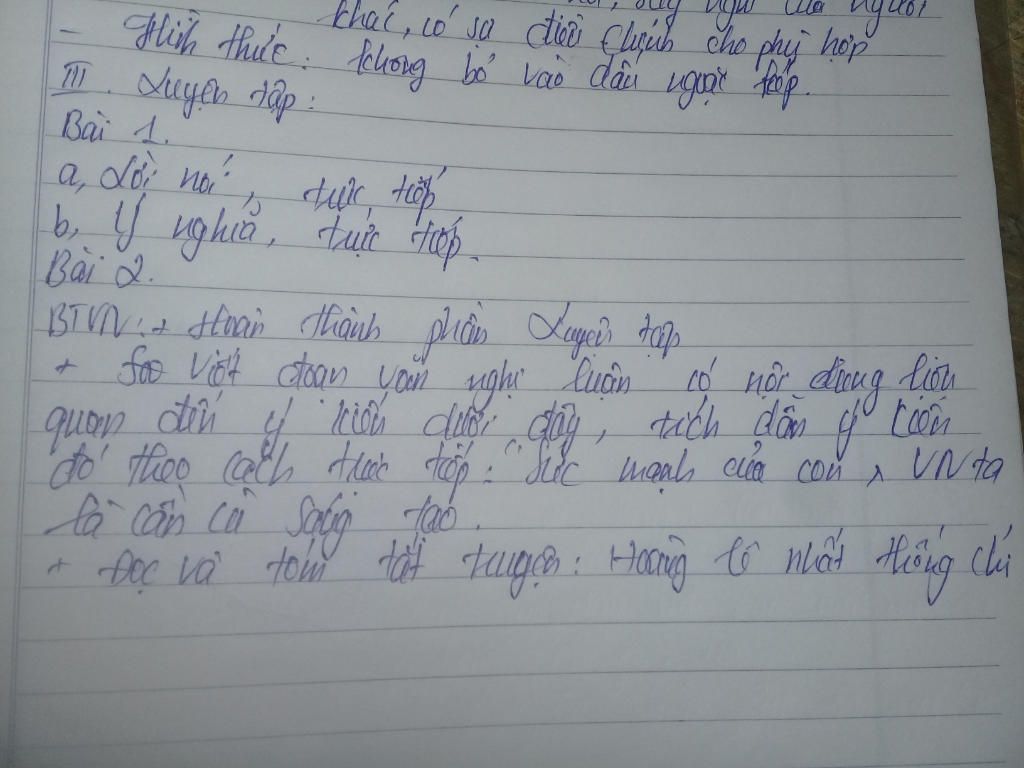 khác, có sự điều chỉnh cho phù hợp
- Hình thức: không bỏ vào dấu ngoặc kép.
III. Luyện tập:
Bài 1.
a, Lời nói, trực tiếp
b, Ý nghĩ, trực tiếp.
Bài 2.
BTVN: + Hoàn thành phần Luyện tập
+ Viết đoạn văn nghị luận có nội dung liên
quan đến ý kiến dưới đây, trích dẫn ý kiến
đó theo cách trực tiếp: "Sức mạnh của con VN ta
là cần cù sáng tạo.
+ Đọc và tóm tắt truyện: Hoàng lê nhất thống chí